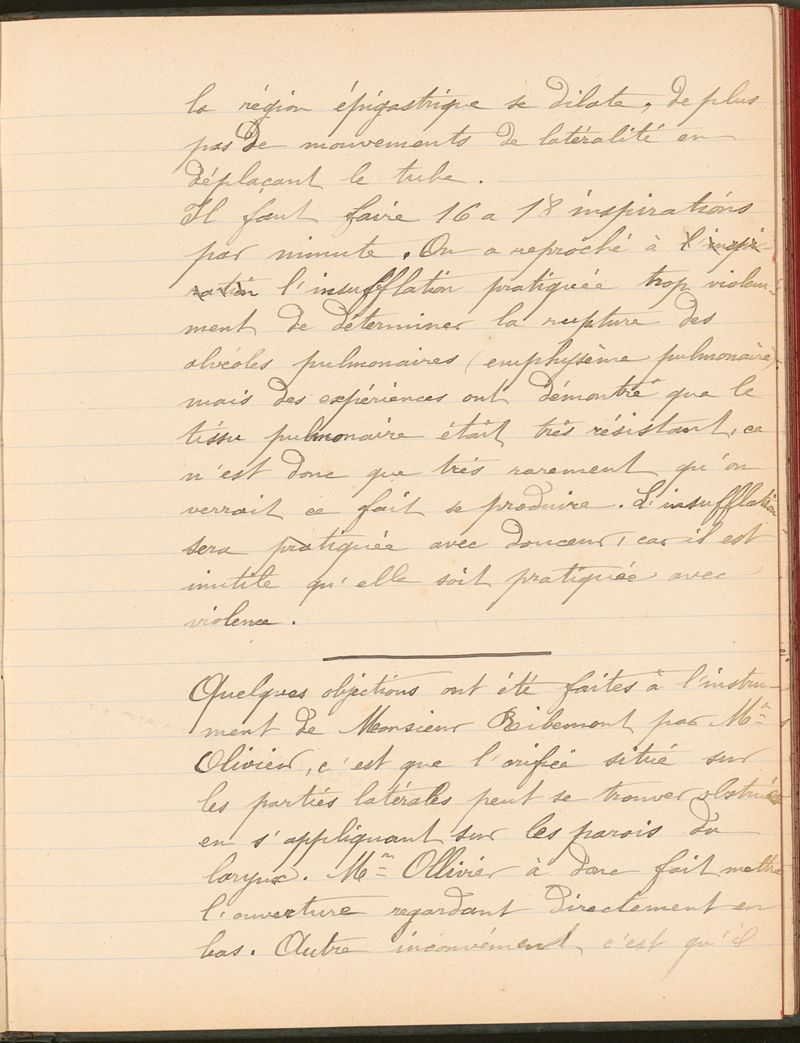 la région épigastrique se dilate, de plus
pas de mouvements de latéralité en
déplaçant le tube.
Il faut faire 16 a 18 inspirations
par minute. On a reproché à l'inspi
ration l'insufflation pratiquée trop violem-
ment de déterminer la rupture des
alvéoles pulmonaires (emphysème pulmonaire)
mais des expériences ont démontré que le
tissu pulmonaire était très résistant, ce
n'est donc que très rarement qu'on
verrait ce fait se produire. L'insufflation
sera pratiquée avec douceur, car il est
inutile qu'elle soit pratiquée avec
violence.
Quelques objections ont été faites à l'instru-
ment de Monsieur Ribemont par Mr
Olivier, c'est que l'orifice situé sur
les parties latérales peut se trouver obstruées
en s'appliquant sur les parois du
larynx. Mr Ollivier à donc fait mettre
l'ouverture regardant directement en
bas. Autre inconvénient c'est qu'il